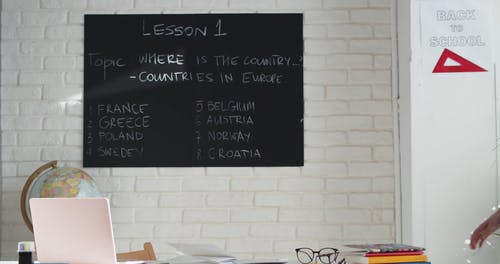 LESSON 1
Topic WHERE IS THE COUNTRY...?
- COUNTRIES IN EUROPE
1 FRANCE
2 GREECE
3 POLAND
4 SWEDEN
5 BELGIUM
6 AUSTRIA
7 NORWAY
8 CROATIA
BACK
TO
SCHOOL